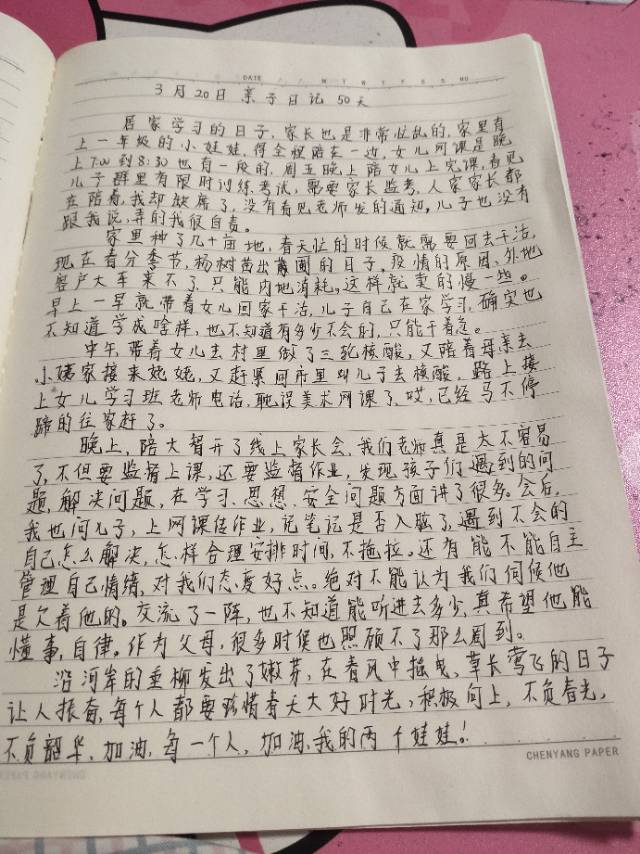 DATE
3月20日 亲子日记 50天
居家学习的日子,家长也是非常忙乱的,家里有
上一年级的小娃娃,得全程陪在一边,女儿网课是晚
上7:00到8:30也有一段的,周五晚上陪女儿上完课,看见
儿子群里有限时训练考试,需要家长监考,人家家长都
在陪着,我却缺席了,没有看见老师发的通知,儿子也没有
跟我说,弄的我很自责。
家里种了几十亩地,春天忙的时候就需要回去干活,
现在春分季节,杨树苗出圃的日子,疫情的原因,外地
客户大车来不了,只能内地消耗,这样就卖的慢一些。
早上一早就带着女儿回家干活,儿子自己在家学习,确实也
不知道学成啥样,也不知道有多少不会的,只能干着急。
中午,带着女儿去村里做了三轮核酸,又陪着母亲去
小姨家接来姥姥,又赶紧回市里叫儿子去核酸,路上接
上女儿学习班老师电话,耽误美术网课了,哎,已经马不停
蹄的往家赶了。
晚上,陪大智开了线上家长会,我们老师真是太不容易
了,不但要监督上课,还要监督作业,发现孩子们遇到的问
题,解决问题,在学习、思想、安全问题方面讲了很多。会后,
我也问儿子,上网课佳作业,记笔记是否入脑了,遇到不会的
自己怎么解决,怎样合理安排时间,不拖拉。还有能不能自主
管理自己情绪,对我们态度好点。绝对不能认为我们伺候他
是欠着他的。交流了一阵,也不知道能听进去多少,真希望他能
懂事,自律。作为父母,很多时候也照顾不了那么周到。
沿河岸的垂柳发出了嫩芽,在春风中摇曳,草长莺飞的日子
让人振奋,每个人都要珍惜春天大好时光,积极向上,不负春光,
不负韶华,加油,每一个人,加油,我的两个娃娃!
CHENYANG PAPER